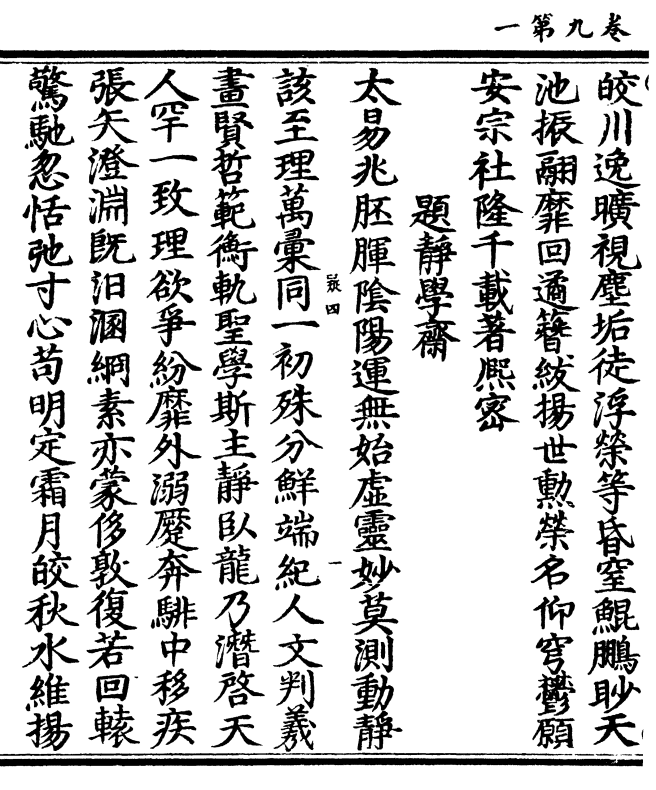 卷九第一
皎川逸曠視塵垢徒浮榮等昏窒鯤鵬眇天
池振翮靡回遹簪紱揚世勲榮名仰穹鬱願
安宗社隆千載著熈宓
題靜學齋
太易兆胚腪陰陽運無始虚靈妙莫測動靜
該至理萬彙同一初殊分鮮端紀人文判羲
畫賢哲範衡軌聖學斯主靜臥龍乃潛啓天
人罕一致理欲爭紛靡外溺蹙奔騑中移疾
張矢澄淵旣汩溷綱素亦蒙侈敦復若回轅
驚馳忽恬弛寸心苟明定霜月皎秋水維揚
四
一